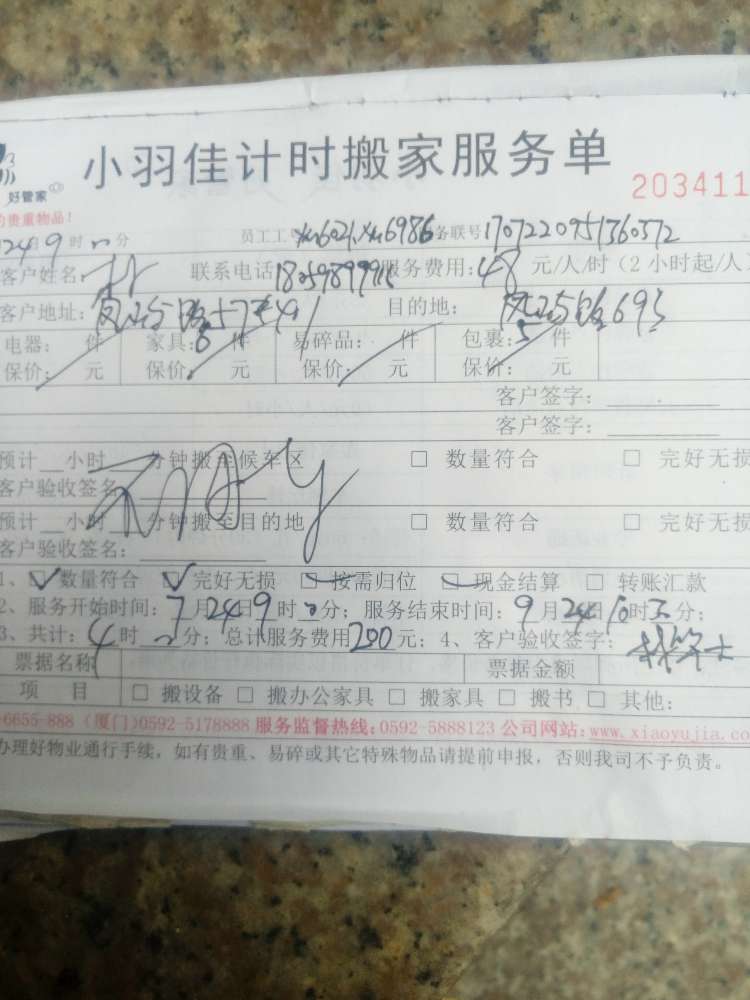 小羽佳计时搬家服务单
好管家
203411
贵重物品!
24 9时 分 员工工 xm6021.xm6986 务联号1707220951360372
客户姓名: 林 联系电话 服务费用:48 元/人/时(2小时起/人
客户地址: 57 目的地: 693
电器: 件 家具:6 件 易碎品: 件 包裹:5 件
保价: 元 保价: 元 保价: 元 保价: 元
客户签字:
客户签字:
预计__小时 分钟搬至候车区 □ 数量符合 □ 完好无损
客户验收签名
预计__小时 分钟搬至目的地 □ 数量符合 □ 完好无损
客户验收签名:
1、☑数量符合 ☑完好无损 □按需归位 □现金结算 □ 转账汇款
2、服务开始时间:7月24日9时 分; 服务结束时间:9月24日10时 分;
3、共计:4时 分; 总计服务费用200元; 4、客户验收签字:
票据名称 票据金额
项 目 □ 搬设备 □ 搬办公家具 □ 搬家具 □ 搬书 □ 其他:
6655-888 (厦门)0592-5178888 服务监督热线:0592-5888123 公司网站:www.xiaoyujia.co
办理好物业通行手续,如有贵重、易碎或其它特殊物品请提前申报,否则我司不予负责。